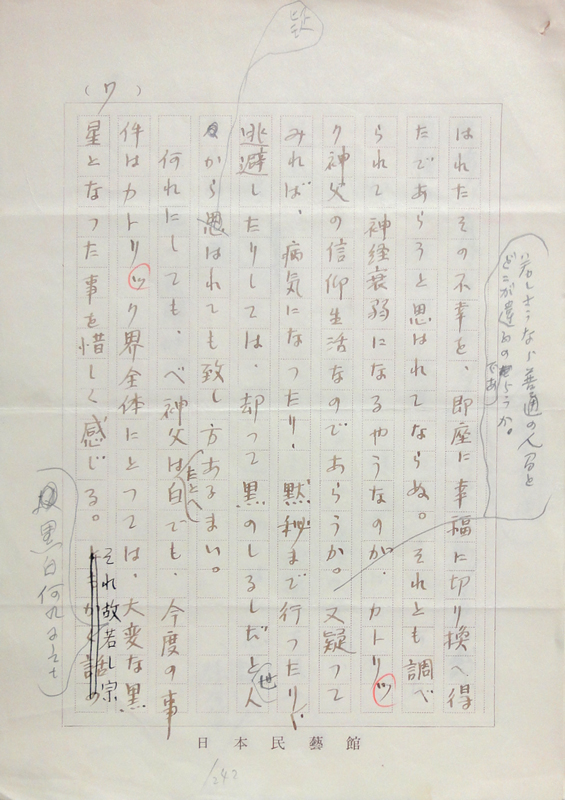 (7)
はれたその不幸を、即座に幸福に切り換へ得
たであらうと思はれてならぬ。それとも調べ
られて神経衰弱になるやうなのが、カトリッ
ク神父の信仰生活なのであらうか。
若しさうなら普通の人間と
どこが違ふのであらうか。
又疑って
みれば、病気になったり、黙秘まで行ったり、
逃避したりしては、却って黒のしるしだと世人
から思はれても致し方あるまい。
何れにしても、べ神父はたとへ白でも、今度の事
件はカトリック界全体にとっては、大変な黒
星となった事を惜しく感じる。
それ故若し宗
黒白何れにせよ
日本民藝館